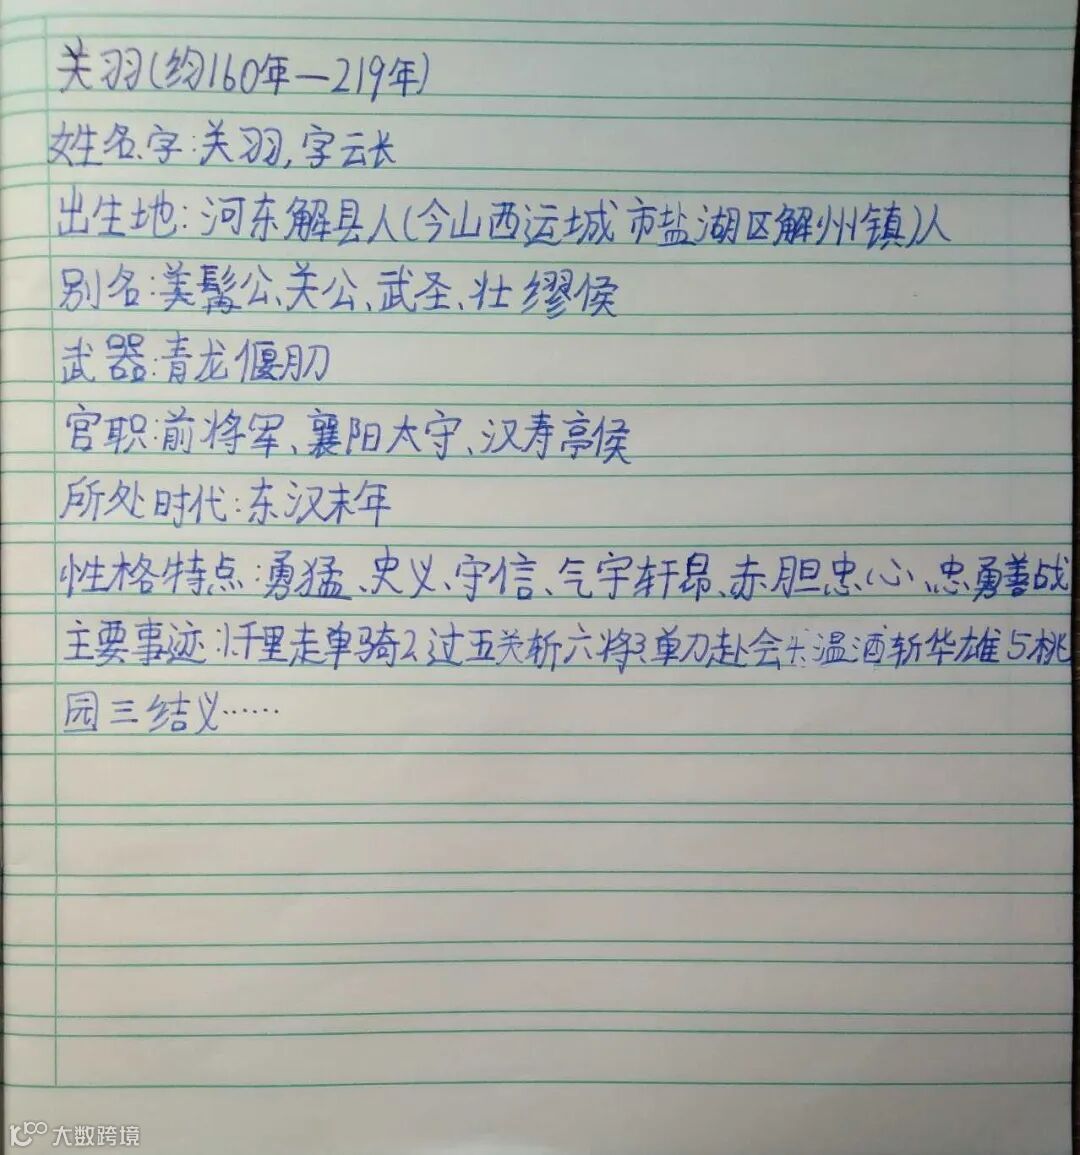 关羽(约160年—219年)
姓名、字:关羽,字云长
出生地:河东解县人(今山西运城市盐湖区解州镇)人
别名:美髯公、关公、武圣、壮缪侯
武器:青龙偃月刀
官职:前将军、襄阳太守、汉寿亭侯
所处时代:东汉末年
性格特点:勇猛、忠义、守信、气宇轩昂、赤胆忠心、忠勇善战
主要事迹:1.千里走单骑2.过五关斩六将3.单刀赴会4.温酒斩华雄5桃
园三结义……
大数跨境